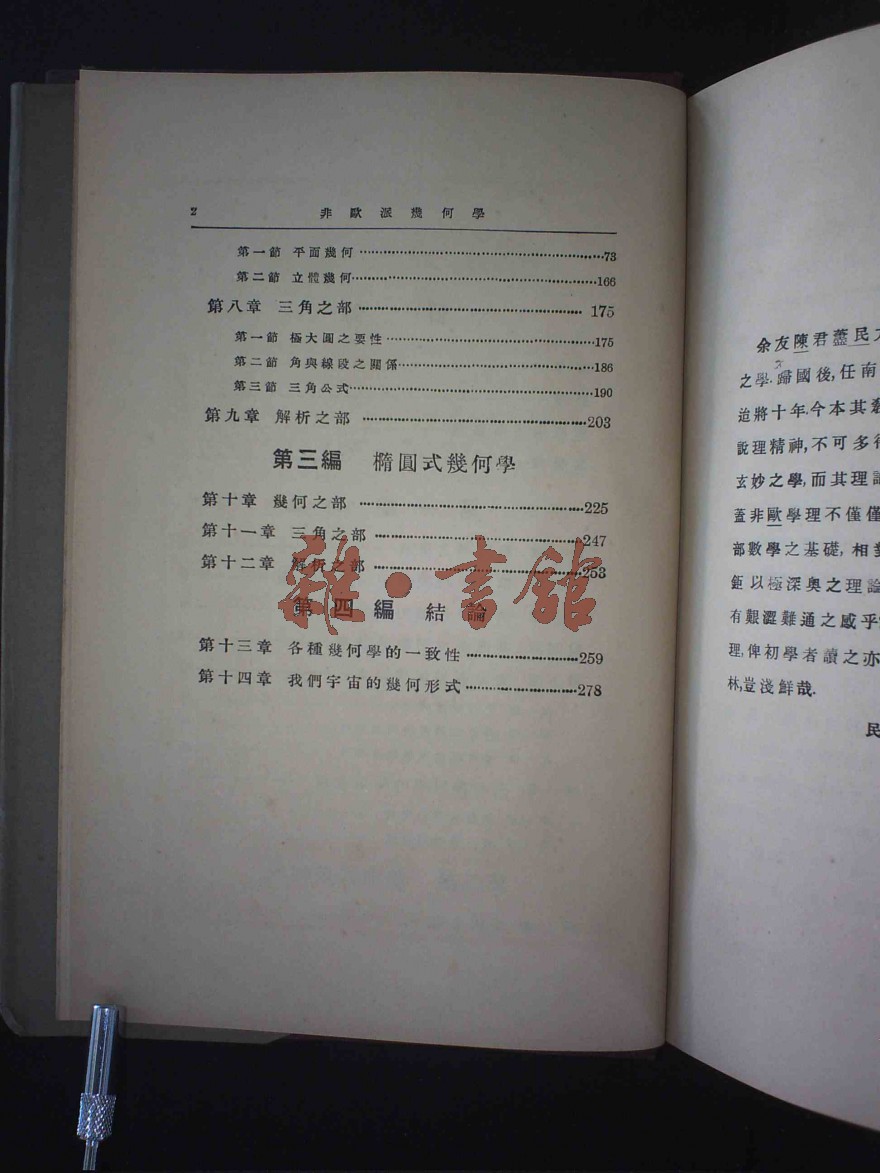 2 非歐派幾何學
第一節 平面幾何 73
第二節 立體幾何 166
第八章 三角之部 175
第一節 極大圓之要性 175
第二節 角與線段之關係 186
第三節 三角公式 190
第九章 解析之部 203
第三編 橢圓式幾何學
第十章 幾何之部 225
第十一章 三角之部 247
第十二章 解析之部 253
第四編 結論
第十三章 各種幾何學的一致性 259
第十四章 我們宇宙的幾何形式 278
雜·書館
余友陳君藎民
之學.歸國後,任南
迨將十年.今本其
說理精神,不可多
玄妙之學,而其理
蓋非歐學理不僅僅
部數學之基礎,相
鉅以極深奧之理論
有艱澀難通之感乎
理,俾初學者讀之亦
林,豈淺鮮哉.
民